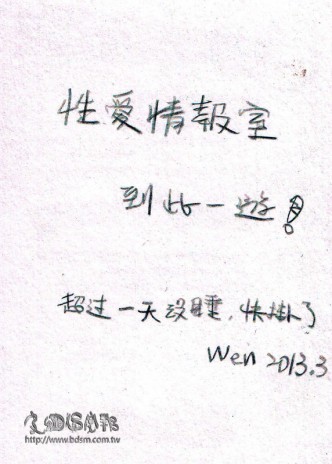 性愛情報室
到此一遊!
超过一天没睡,快掛了
Wen 2013.3
http://www.bdsm.com.tw